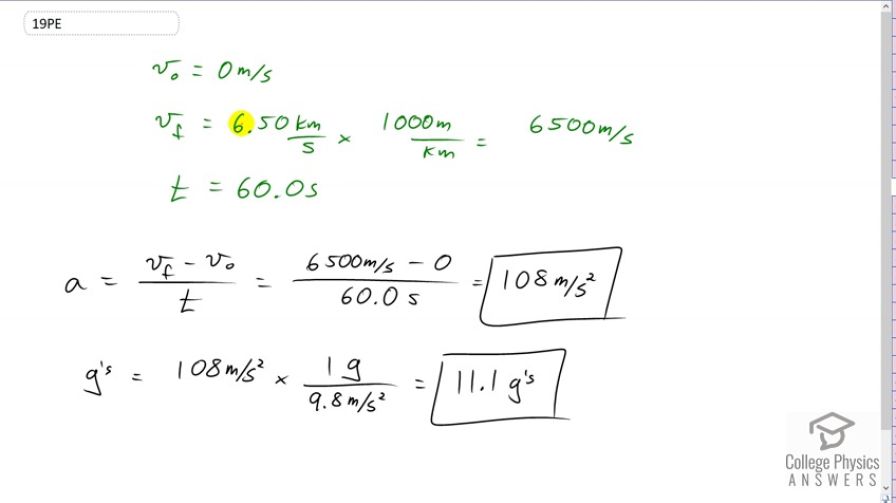 19PE
v₀ = 0 m/s
v_f = 6.50 km/s × 1000m/km = 6500 m/s
t = 60.0 s
a = (v_f - v₀)/t = (6500 m/s - 0)/60.0 s = 108 m/s²
g's = 108 m/s² × 1 g/9.8 m/s² = 11.1 g's
College Physics
ANSWERS